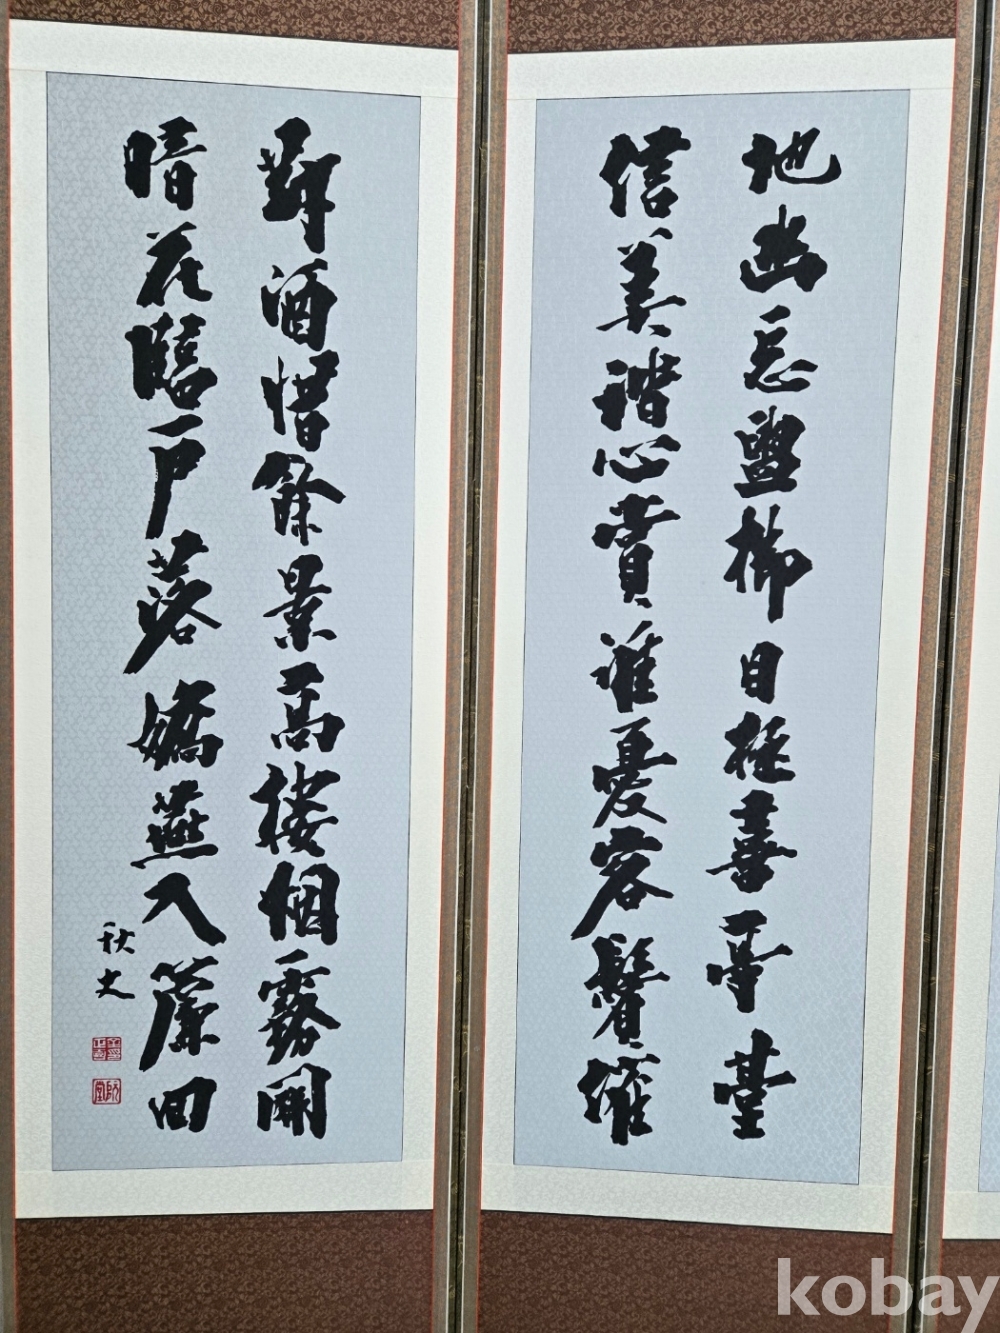 地幽忘盥櫛目極喜亭臺
信美諧心賞誰憂客鬢催
對酒惜餘景高樓烟霧開
暗花臨戶落嬌燕入簾回
秋史
kobay